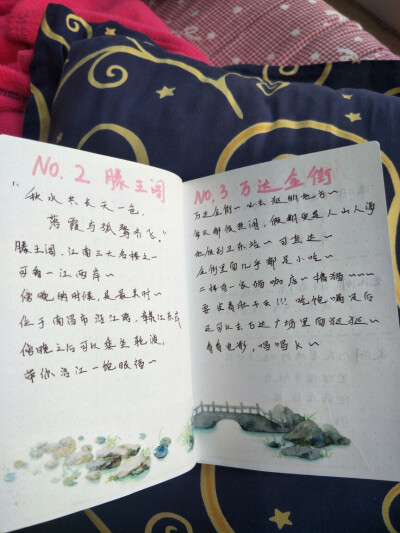 NO.2 滕王阁
"秋水共长天一色,
落霞与孤鹜齐飞。"
滕王阁,江南三大名楼之一
可看一江两岸~
傍晚的时候,是最美的~
位于南昌市沿江路,赣江东岸
傍晚之后可以乘坐轮渡,
带你沿江一饱眼福~
NO.3 万达金街
万达金街一
每天都很热闹,假期更是人山人海
地铁到卫东站~可直达~
金街里面几乎都是小吃~
二楼有一家猫咖店~橘猫~~~~
要坐着敞开玩!!! 吃饱喝足后
还可以去万达广场里面逛逛~
看看电影,唱唱K~